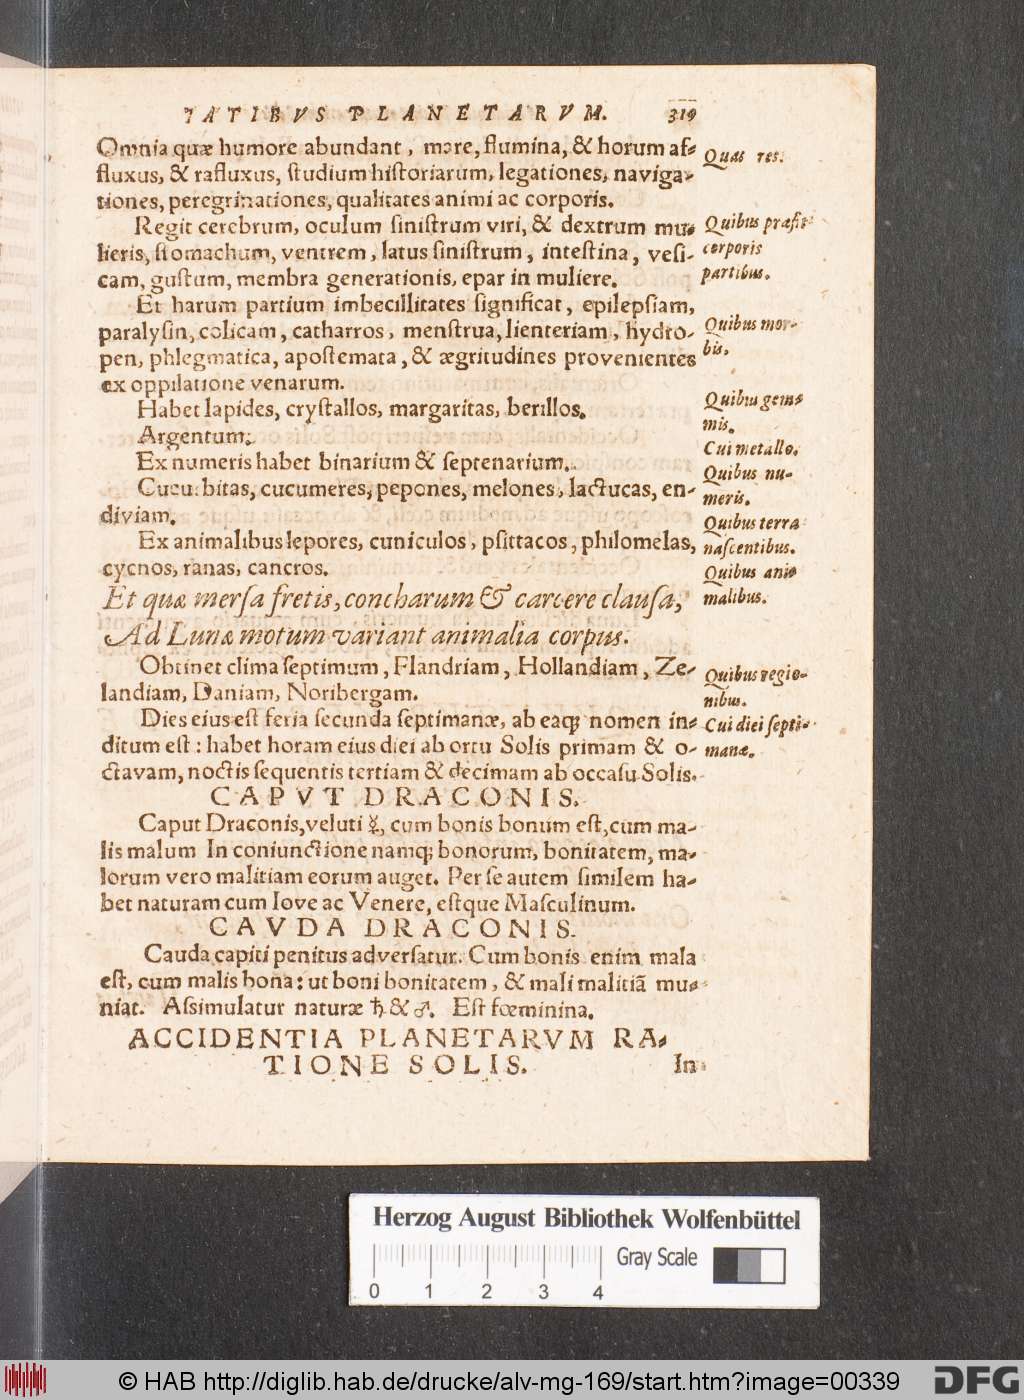 TATIBVS PLANETARVM. 319
Omnia quæ humore abundant, mare, flumina, & horum af-
fluxus, & rafluxus, ſtudium hiſtoriarum, legationes, naviga-
tiones, peregrinationes, qualitates animi ac corporis.
Quas res.
Regit cerebrum, oculum ſiniſtrum viri, & dextrum mu-
lieris, ſtomachum, ventrem, latus ſiniſtrum, inteſtina, veſi-
cam, guſtum, membra generationis, epar in muliere.
Quibus præſit
corporis
partibus.
Et harum partium imbecillitates ſignificat, epilepſiam,
paralyſin, colicam, catharros, menſtrua, lienteriam, hydro-
pen, phlegmatica, apoſtemata, & ægritudines provenientes
ex oppilatione venarum.
Quibus mor-
bis.
Habet lapides, cryſtallos, margaritas, berillos.
Quibus gem-
mis.
Argentum.
Cui metallo.
Ex numeris habet binarium & ſeptenarium.
Quibus nu-
meris.
Cucurbitas, cucumeres, pepones, melones, lactucas, en-
diviam.
Quibus terra
naſcentibus.
Ex animalibus lepores, cuniculos, pſittacos, philomelas,
cycnos, ranas, cancros.
Quibus ani-
malibus.
Et quæ merſa fretis, concharum & carcere clauſa,
Ad Lunæ motum variant animalia corpus.
Obtinet clima ſeptimum, Flandriam, Hollandiam, Ze-
landiam, Daniam, Noribergam.
Quibus regio-
nibus.
Dies eius eſt feria ſecunda ſeptimanæ, ab eaq; nomen in-
ditum eſt: habet horam eius diei ab ortu Solis primam & o-
ctavam, noctis ſequentis tertiam & decimam ab occaſu Solis.
Cui diei ſepti-
manæ.
CAPVT DRACONIS.
Caput Draconis, veluti ☿, cum bonis bonum eſt, cum ma-
lis malum In coniunctione namq; bonorum, bonitatem, ma-
lorum vero malitiam eorum auget. Per ſe autem ſimilem ha-
bet naturam cum Iove ac Venere, eſtque Maſculinum.
CAVDA DRACONIS.
Cauda capiti penitus adverſatur. Cum bonis enim mala
eſt, cum malis bona: ut boni bonitatem, & mali malitiã mu-
niat. Aſsimulatur naturæ ♄ & ♂. Eſt fœminina.
ACCIDENTIA PLANETARVM RA-
TIONE SOLIS.
In
Herzog August Bibliothek Wolfenbüttel
Gray Scale
0 1 2 3 4
© HAB http://diglib.hab.de/drucke/alv-mg-169/start.htm?image=00339
DFG